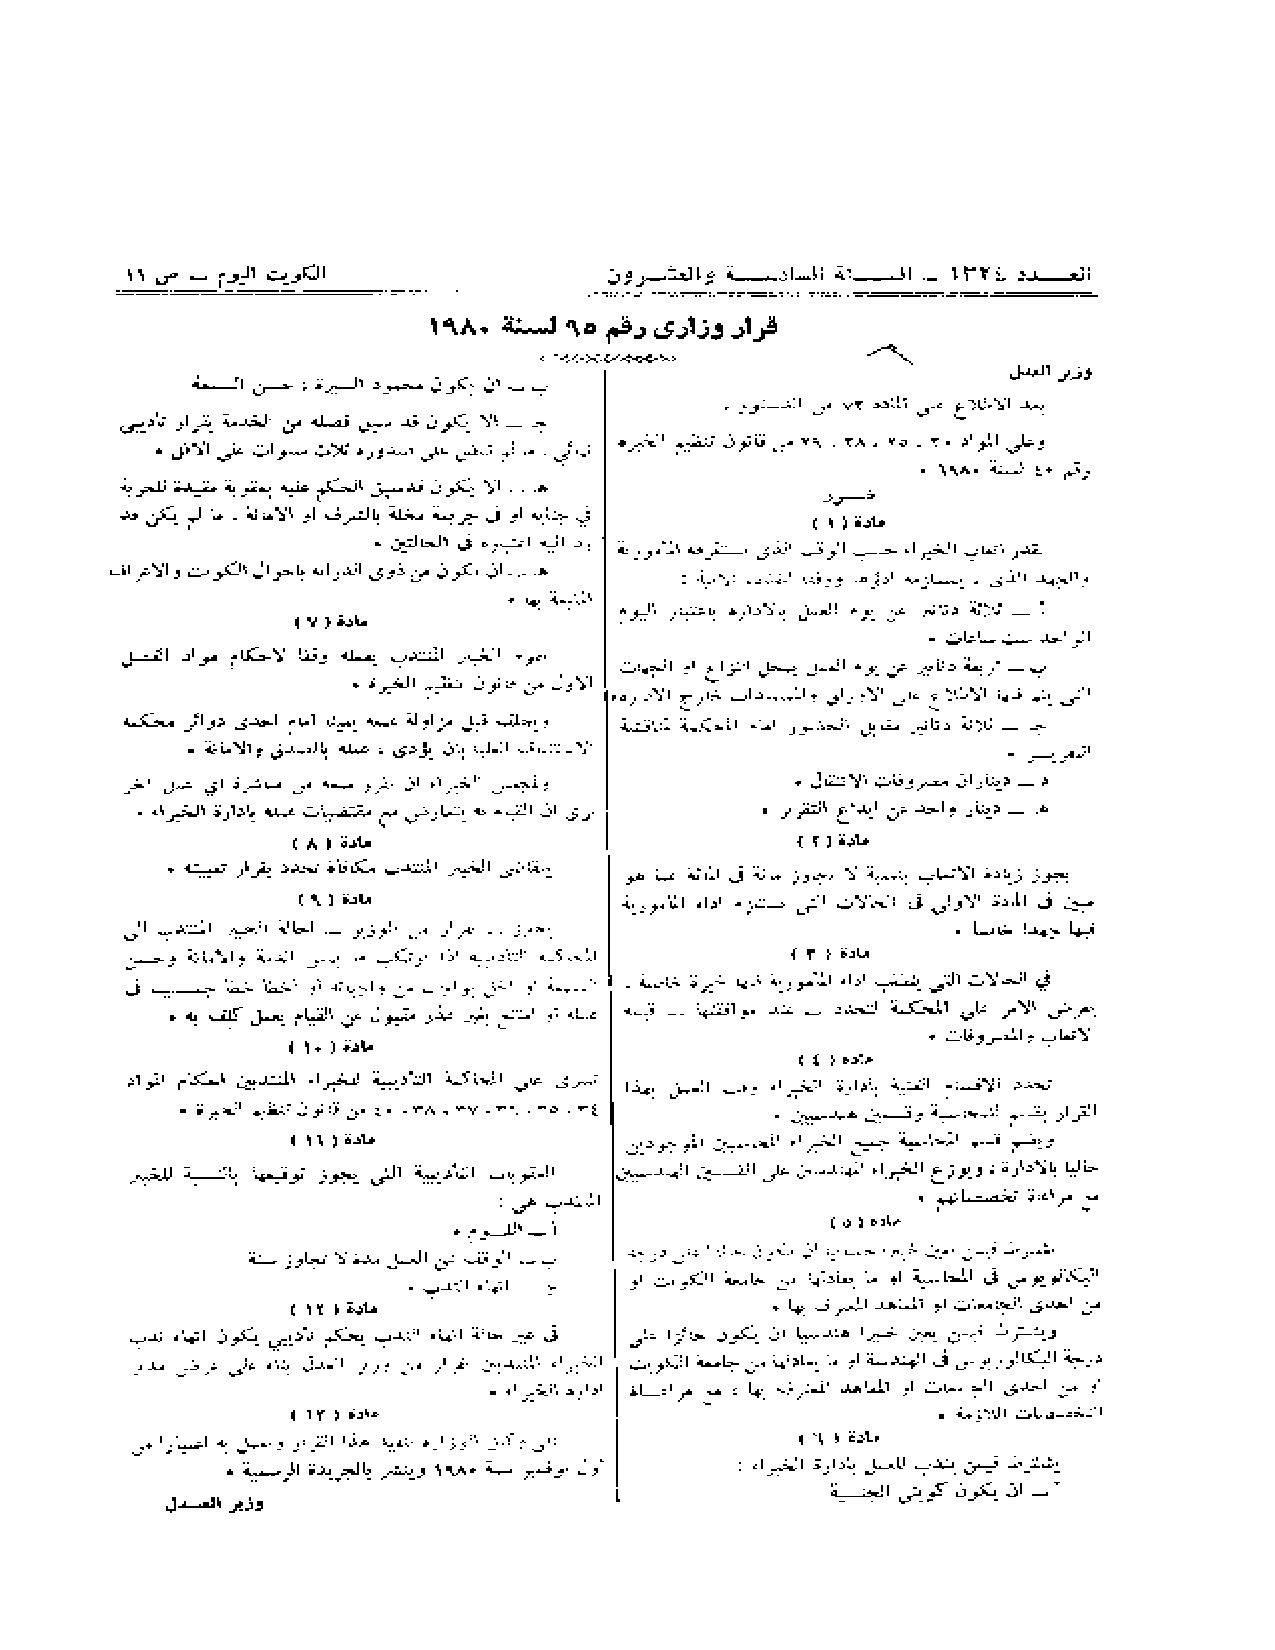 العـــدد ١٣٢٤ ــ الســنة السادســة والعشــرون
الكويت اليوم ــ ص ١١
قرار وزارى رقم ٩٥ لسنة ١٩٨٠
وزير العدل
بعد الاطلاع على المادة ٧٣ من الدستور .
وعلى المواد ٣٠ ، ٢٥ ، ٢٨ ، ٢٩ من قانون تنظيم الخبرة
رقم ٤٠ لسنة ١٩٨٠ •
قـــرر
مادة ( ١ )
تقدر اتعاب الخبراء حسب الوقت الذى تستغرقه المأمورية
والجهد الذى يستلزمه اداؤها ووفقا للفئات الاتية :
أ ــ ثلاثة دنانير عن يوم العمل بالادارة باعتبار اليوم
الواحد ست ساعات •
ب ــ اربعة دنانير عن يوم العمل بمحل النزاع او الجهات
التى يتم فيها الاطلاع على الاوراق والمستندات خارج الادارة •
جـ ــ ثلاثة دنانير مقابل الحضور امام المحكمة لمناقشة
التقريــر •
د ــ ديناران مصروفات الانتقال •
هـ ــ دينار واحد عن ايداع التقرير •
مادة ( ٢ )
يجوز زيادة الاتعاب بنسبة لا تجاوز مائة فى المائة عما هو
مبين فى المادة الاولى فى الحالات التى يستلزم اداء المأمورية
فيها جهدا خاصا •
مادة ( ٣ )
في الحالات التي يتطلب اداء المأمورية فيها خبرة خاصة ،
يعرض الامر على المحكمة لتحدد ــ عند موافقتها ــ قيمة
الاتعاب والمصروفات •
مادة ( ٤ )
تحدد الاقسام الفنية بادارة الخبراء وقت العمل بهذا
القرار بقسم للمحاسبة وقسمين هندسيين •
ويضم قسم المحاسبة جميع الخبراء المحاسبين الموجودين
حاليا بالادارة ، ويوزع الخبراء المهندسين على القسمين الهندسيين
مع مراعاة تخصصاتهم •
مادة ( ٥ )
يشترط فيمن يعين خبيرا حسابيا ان يكون حائزا على درجة
البكالوريوس فى المحاسبة او ما يعادلها من جامعة الكويت او
من احدى الجامعات او المعاهد المعترف بها •
ويشترط فيمن يعين خبيرا هندسيا ان يكون حائزا على
درجة البكالوريوس فى الهندسة او ما يعادلها من جامعة الكويت
او من احدى الجامعات او المعاهد المعترف بها ، مع مراعــاة
التخصصات اللازمة •
مادة ( ٦ )
يشترط فيمن يندب للعمل بادارة الخبراء :
أ ــ ان يكون كويتي الجنسية
ب ــ ان يكون محمود السيرة ، حسن السمعة
جـ ــ الا يكون قد سبق فصله من الخدمة بقرار تأديبي
نهائي ، ما لم تمض على صدوره ثلاث سنوات على الاقل •
هـ ــ الا يكون قد سبق الحكم عليه بعقوبة مقيدة للحرية
في جناية او فى جريمة مخلة بالشرف او الامانة ، ما لم يكن قد
رد اليه اعتباره فى الحالتين •
هـ ــ ان يكون من ذوى الدراية باحوال الكويت والاعراف
المتبعة بها •
مادة ( ٧ )
يقوم الخبير المنتدب بعمله وفقا لاحكام مواد الفصل
الاول من قانون تنظيم الخبرة •
ويحلف قبل مزاولة عمله يمينا امام احدى دوائر محكمة
الاستئناف العليا بان يؤدى عمله بالصدق والامانة •
ولمجلس الخبراء ان يقرر منعه من مباشرة اي عمل اخر
يرى ان القيام به يتعارض مع مقتضيات عمله بادارة الخبراء •
مادة ( ٨ )
يتقاضى الخبير المنتدب مكافأة تحدد بقرار تعيينه •
مادة ( ٩ )
يجوز ــ بقرار من الوزير ــ احالة الخبير المنتدب الى
المحاكمة التأديبية اذا ارتكب ما يمس الذمة والامانة وحسن
السمعة او اخل بواجب من واجباته أو أخطأ خطأ جسيما فى
عمله أو امتنع بغير عذر مقبول عن القيام بعمل كلف به •
مادة ( ١٠ )
تسرى على المحاكمة التأديبية للخبراء المنتدبين احكام المواد
٣٤ ، ٣٥ ، ٣٦ ، ٣٧ ، ٣٨ ، ٤٠ من قانون تنظيم الخبرة •
مادة ( ١١ )
العقوبات التأديبية التي يجوز توقيعها بالنسبة للخبير
المنتدب هى :
أ ــ اللــوم •
ب ــ الوقف عن العمل مدة لا تجاوز سنة
جـ ــ انهاء الندب •
مادة ( ١٢ )
فى غير حالة انهاء الندب بحكم تأديبي يكون انهاء ندب
الخبراء المنتدبين بقرار من وزير العدل بناء على عرض مدير
ادارة الخبراء •
مادة ( ١٣ )
على وكيل الوزارة تنفيذ هذا القرار ويعمل به اعتبارا من
أول نوفمبر سنة ١٩٨٠ وينشر بالجريدة الرسمية •
وزير العــدل